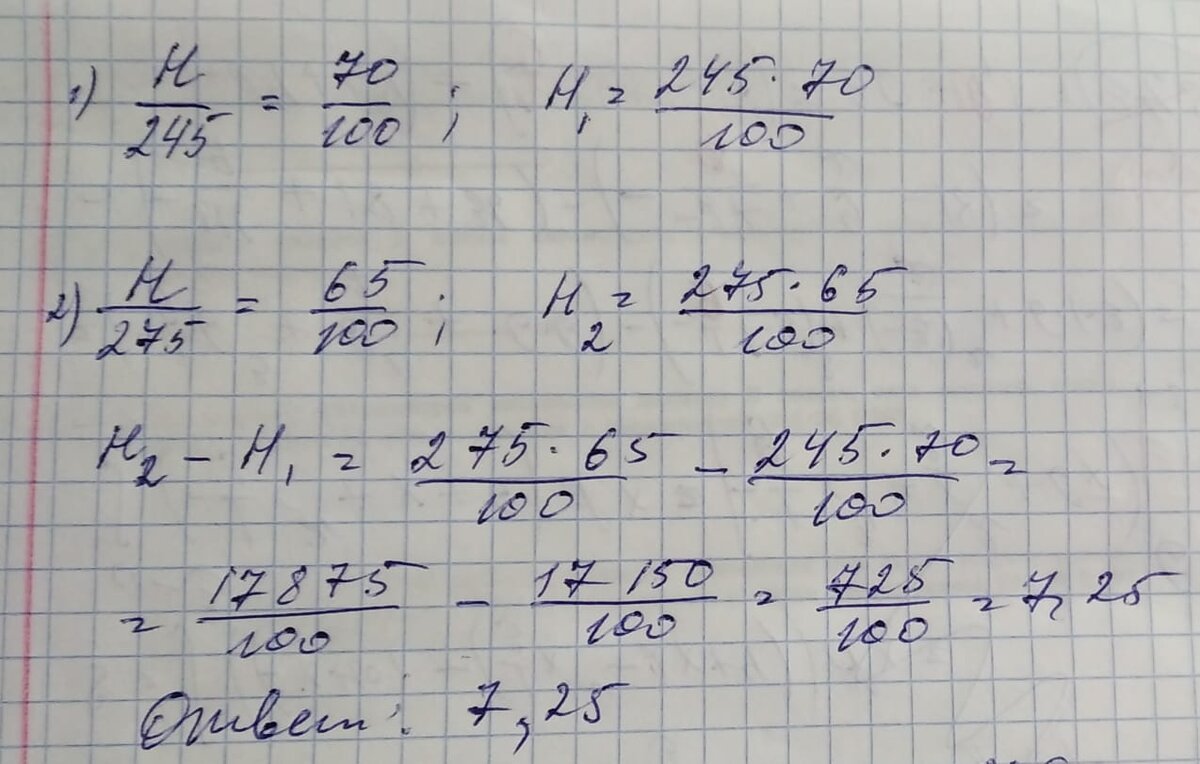 1) Н/245 = 70/100 ; Н₁ = 245·70/100
2) Н/275 = 65/100 ; Н₂ = 275·65/100
Н₂ - Н₁ = 275·65/100 - 245·70/100 =
= 17875/100 - 17150/100 = 725/100 = 7,25
Ответ: 7,25